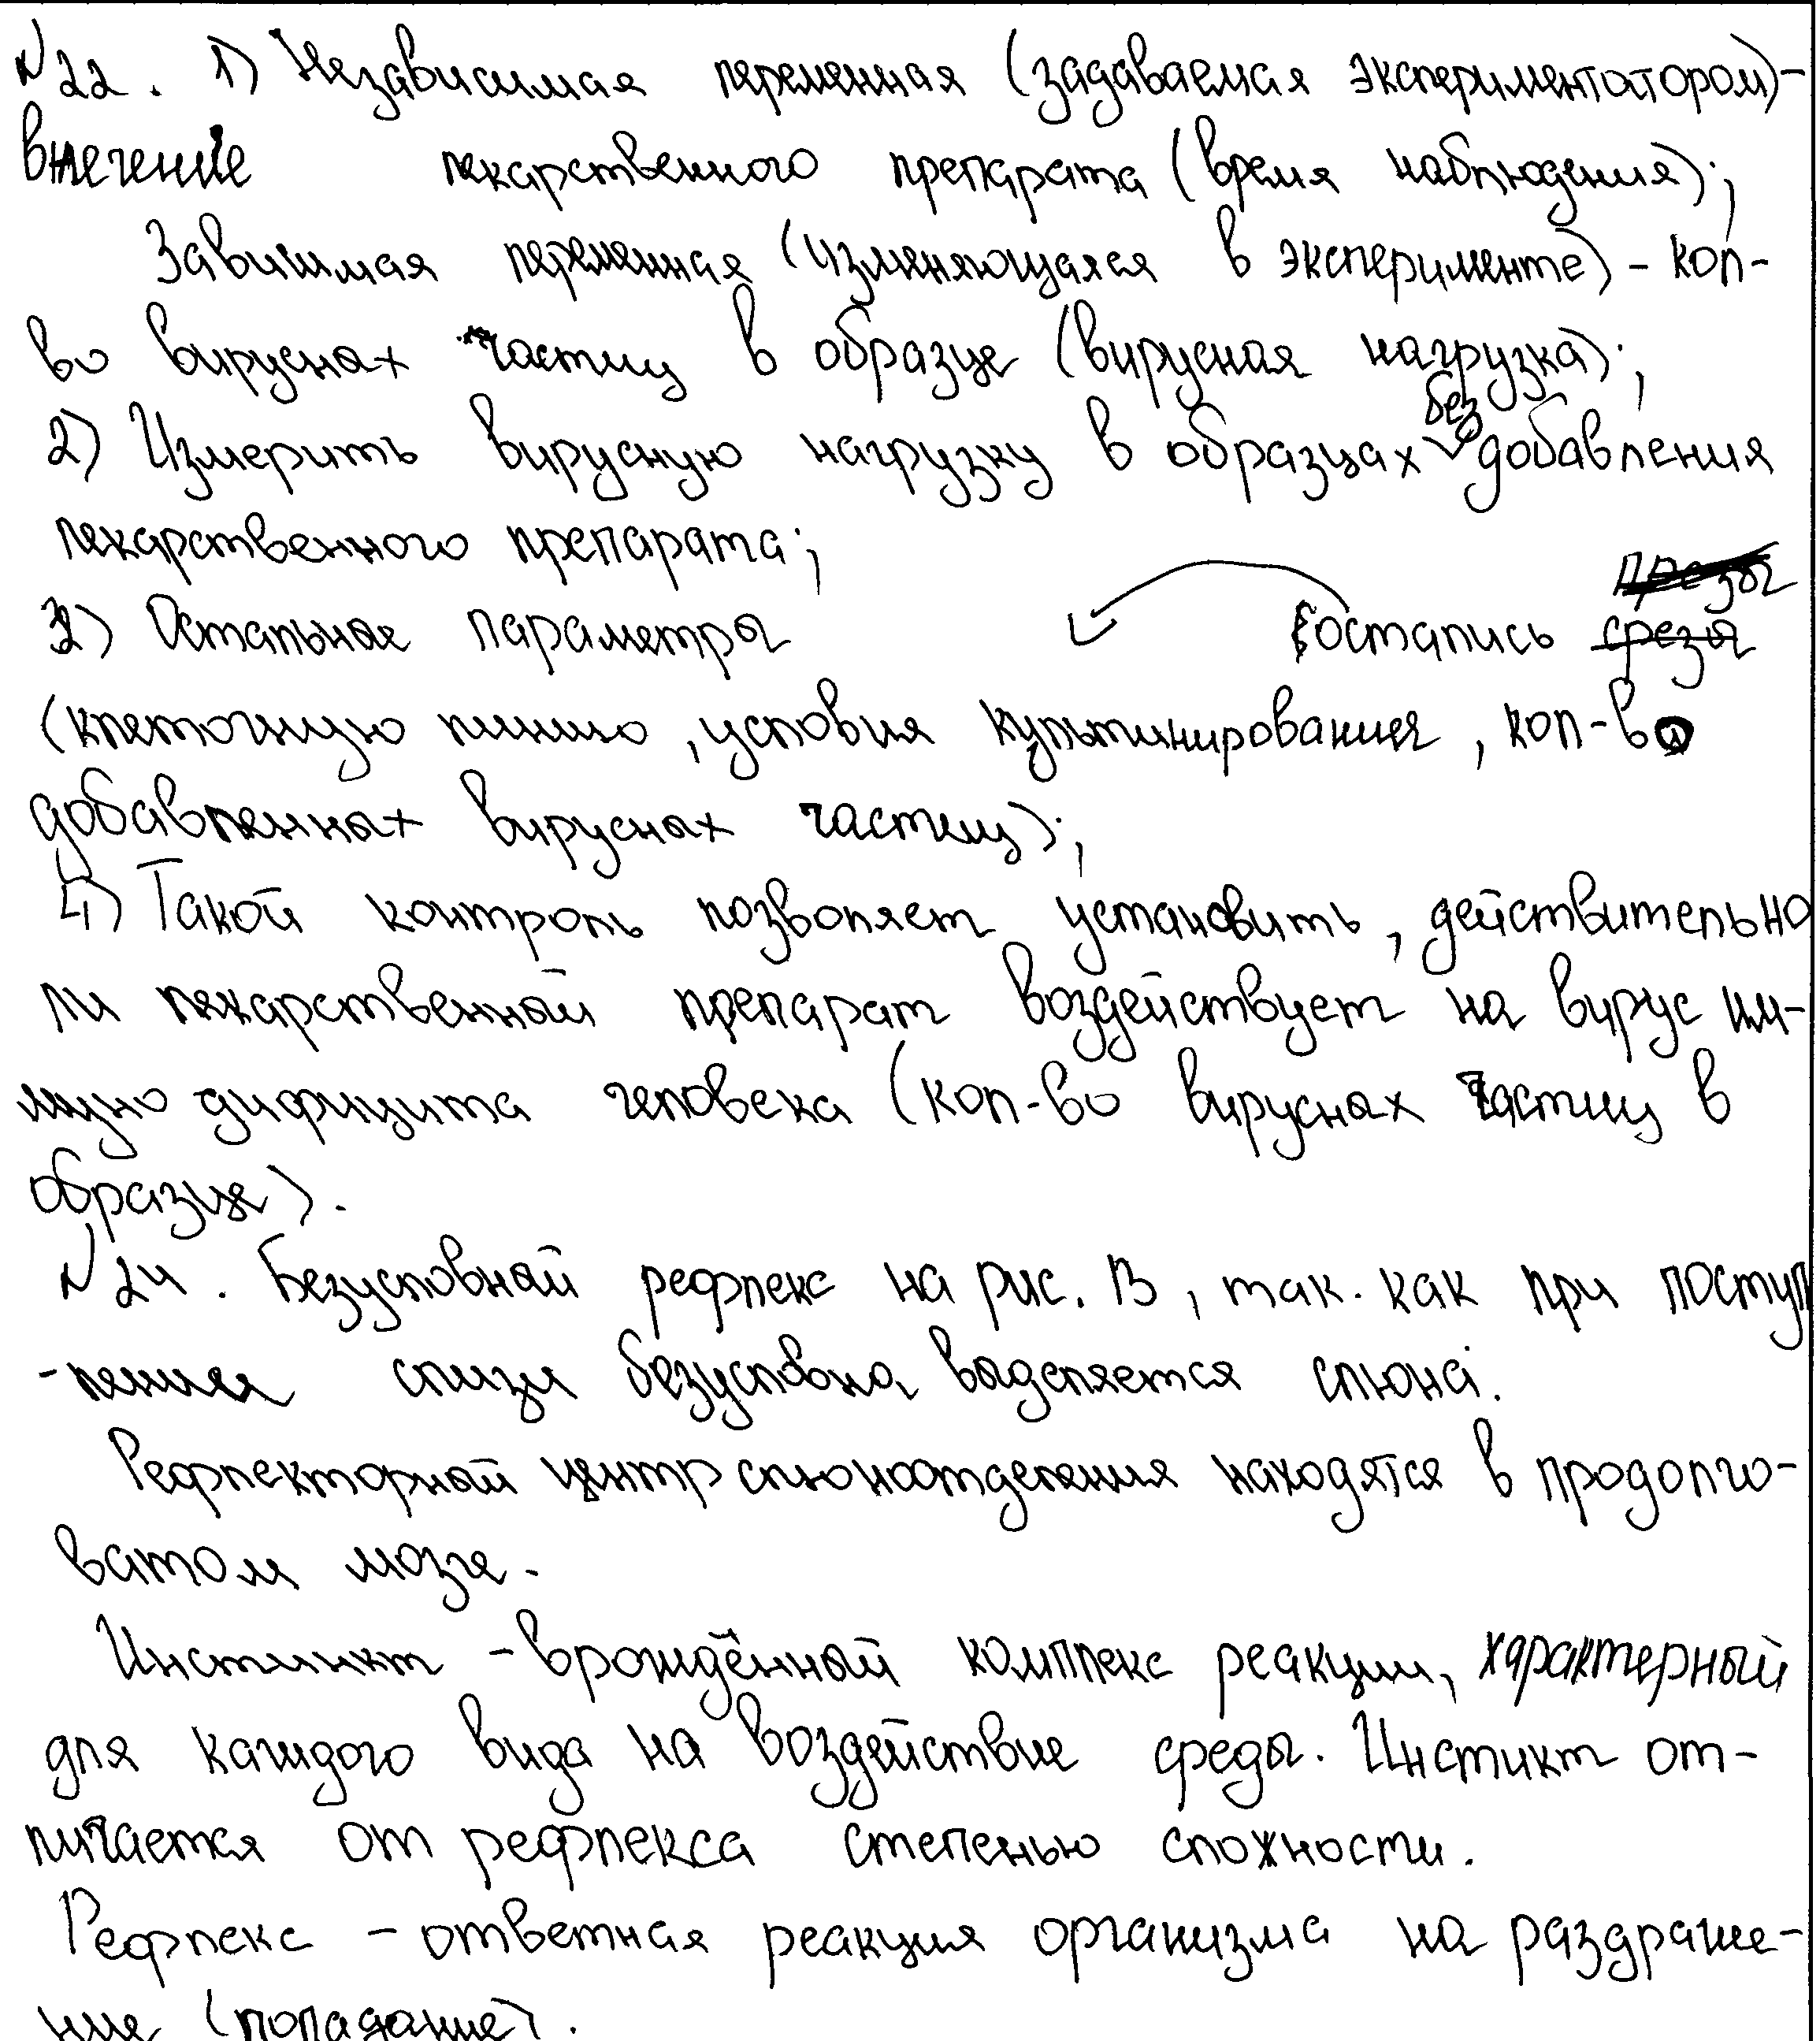 №22. 1) Независимая переменная (задаваемая экспериментатором)-
лекарственного препарата (время наблюдения);
Зависимая переменная (изменяющаяся в эксперименте) - кол-
во вирусных частиц в образце (вирусная нагрузка);
2) Измерить вирусную нагрузку в образцах без добавления
лекарственного препарата;
3) Остальные параметры остались
(клеточную линию, условия культинирования, кол-во
добавленных вирусных частиц);
4) Такой контроль позволяет установить, действительно
ли лекарственный препарат воздействует на вирус им-
мунодифицита человека (кол-во вирусных частиц в
образце).
№24. Безусловный рефлекс на рис. В, так. как при поступ
-лении безусловно выделяется слюна.
Рефлекторный центр слюноотделения находятся в продолго-
ватом мозге.
Инстинкт - врождённый комплекс реакции, характерный
для каждого вида на воздействие среды. Инстикт от-
личается от рефлекса степенью сложности.
Рефлекс - ответная реакция организма на раздраже-
ние (попадание).